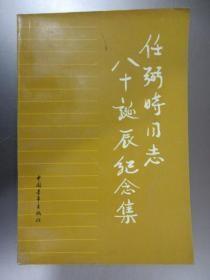 任弼时同志
八十诞辰纪念集
中国青年出版社